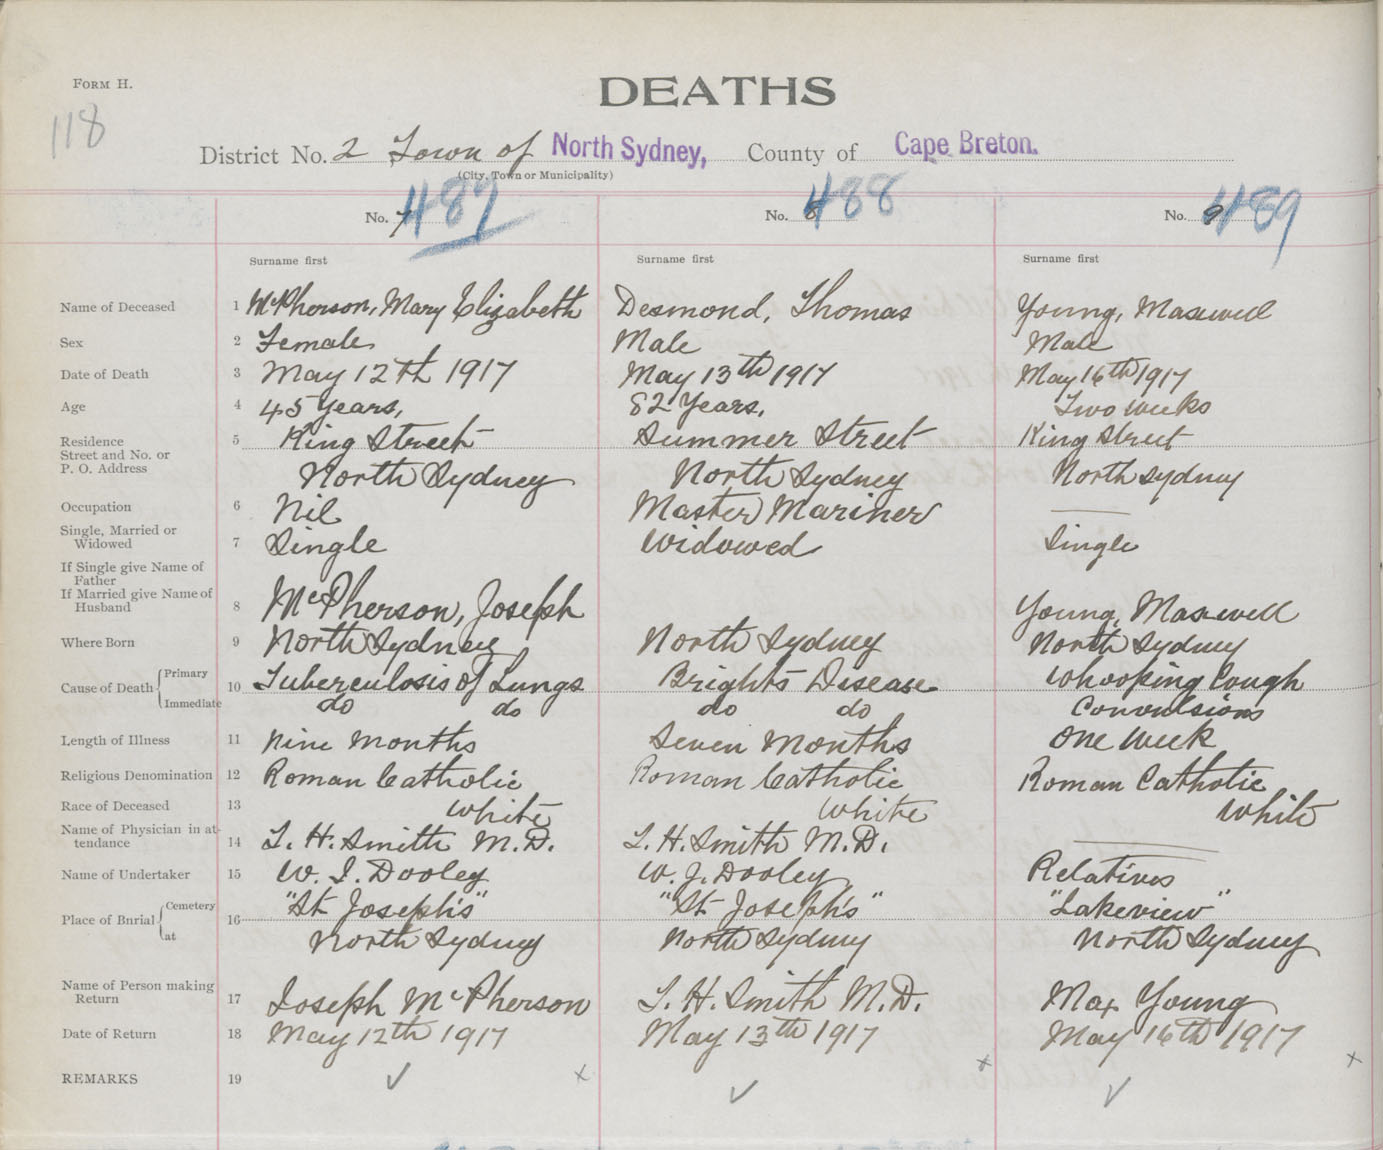 FORM H.
DEATHS
118
District No. 2 Town of North Sydney, County of Cape Breton.
(City, Town or Municipality)
No. 7 487 No. 8 488 No. 9 489
Surname first Surname first Surname first
Name of Deceased 1 McPherson, Mary Elizabeth Desmond, Thomas Young, Maxwell
Sex 2 Female Male Male
Date of Death 3 May 12th 1917 May 13th 1917 May 16th 1917
Age 4 45 years, 82 Years, Two weeks
Residence 5 King Street Summer Street King Street
Street and No. or
P. O. Address North Sydney North Sydney North Sydney
Occupation 6 Nil Master Mariner
Single, Married or
Widowed 7 Single Widowed Single
If Single give Name of
Father
If Married give Name of
Husband 8 McPherson, Joseph Young, Maxwell
Where Born 9 North Sydney North Sydney North Sydney
Cause of Death Primary 10 Tuberculosis of Lungs Brights Disease Whooping Cough
Immediate do do do do Convulsions
Length of Illness 11 Nine Months Seven Months One Week
Religious Denomination 12 Roman Catholic Roman Catholic Roman Catholic
Race of Deceased 13 White White White
Name of Physician in at-
tendance 14 L. H. Smith M.D. L. H. Smith M.D.
Name of Undertaker 15 W. J. Dooley W. J. Dooley Relatives
Place of Bnrial Cemetery 16 "St Joseph's" "St Joseph's" "Lakeview"
at North Sydney North Sydney North Sydney
Name of Person making
Return 17 Joseph McPherson L. H. Smith M.D. Max Young
Date of Return 18 May 12th 1917 May 13th 1917 May 16th 1917
REMARKS 19